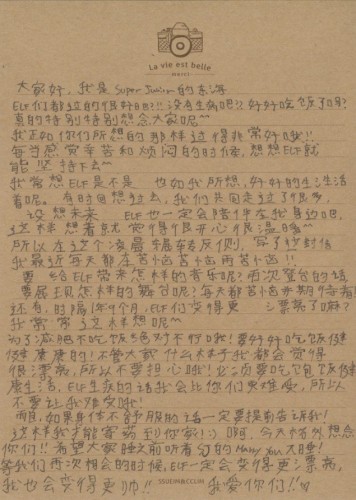 La vie est belle
merci
大家好，我是 Super Junior 的东海
ELF们都过的很好吧?!! 没有生病吧?! 好好吃饭了吗?
真的特别特别想念大家呢~
我正如你们所想的那样过得非常好哦!!
每当感觉辛苦和烦闷的时候，想想ELF就
能坚持下去~
我常想ELF是不是也如我所想，好好的生活生活
着呢。有时回想过去，我们共同走过了很多，
设想未来 ELF也一定会陪伴在我身边吧，
这样想着就觉得很开心很温暖~
所以在这个凌晨辗转反侧，写了这封信
我最近每天都在苦恼苦恼再苦恼!!
要给ELF带来怎样的音乐呢? 再次登台的话
要展现怎样的舞台呢? 每天都苦恼并期待着
还有，时隔1年9个月，ELF们变得更漂亮了嘛?
我常常这样想呢~
为了减肥不吃饭绝对不行哦! 要好好吃饭健
健康康的! 不管大家什么样子我都会觉得
很漂亮，所以不要担心哦! 必须要吃饱饭健
康生活，ELF生病的话我会比你们更难受，所以
不要让我难受哦!
而且，如果身体不舒服的话一定要提前告诉我!
这样我才能寄药到你家! :) 啊，今天格外想念
你们!! 希望大家睡之前听着幻的 Many You 大睡!
等我们再次相会的时候，ELF一定会变得更漂亮，
我也会变得更帅!! 我爱你们!!
SSUEUN@CC.UM